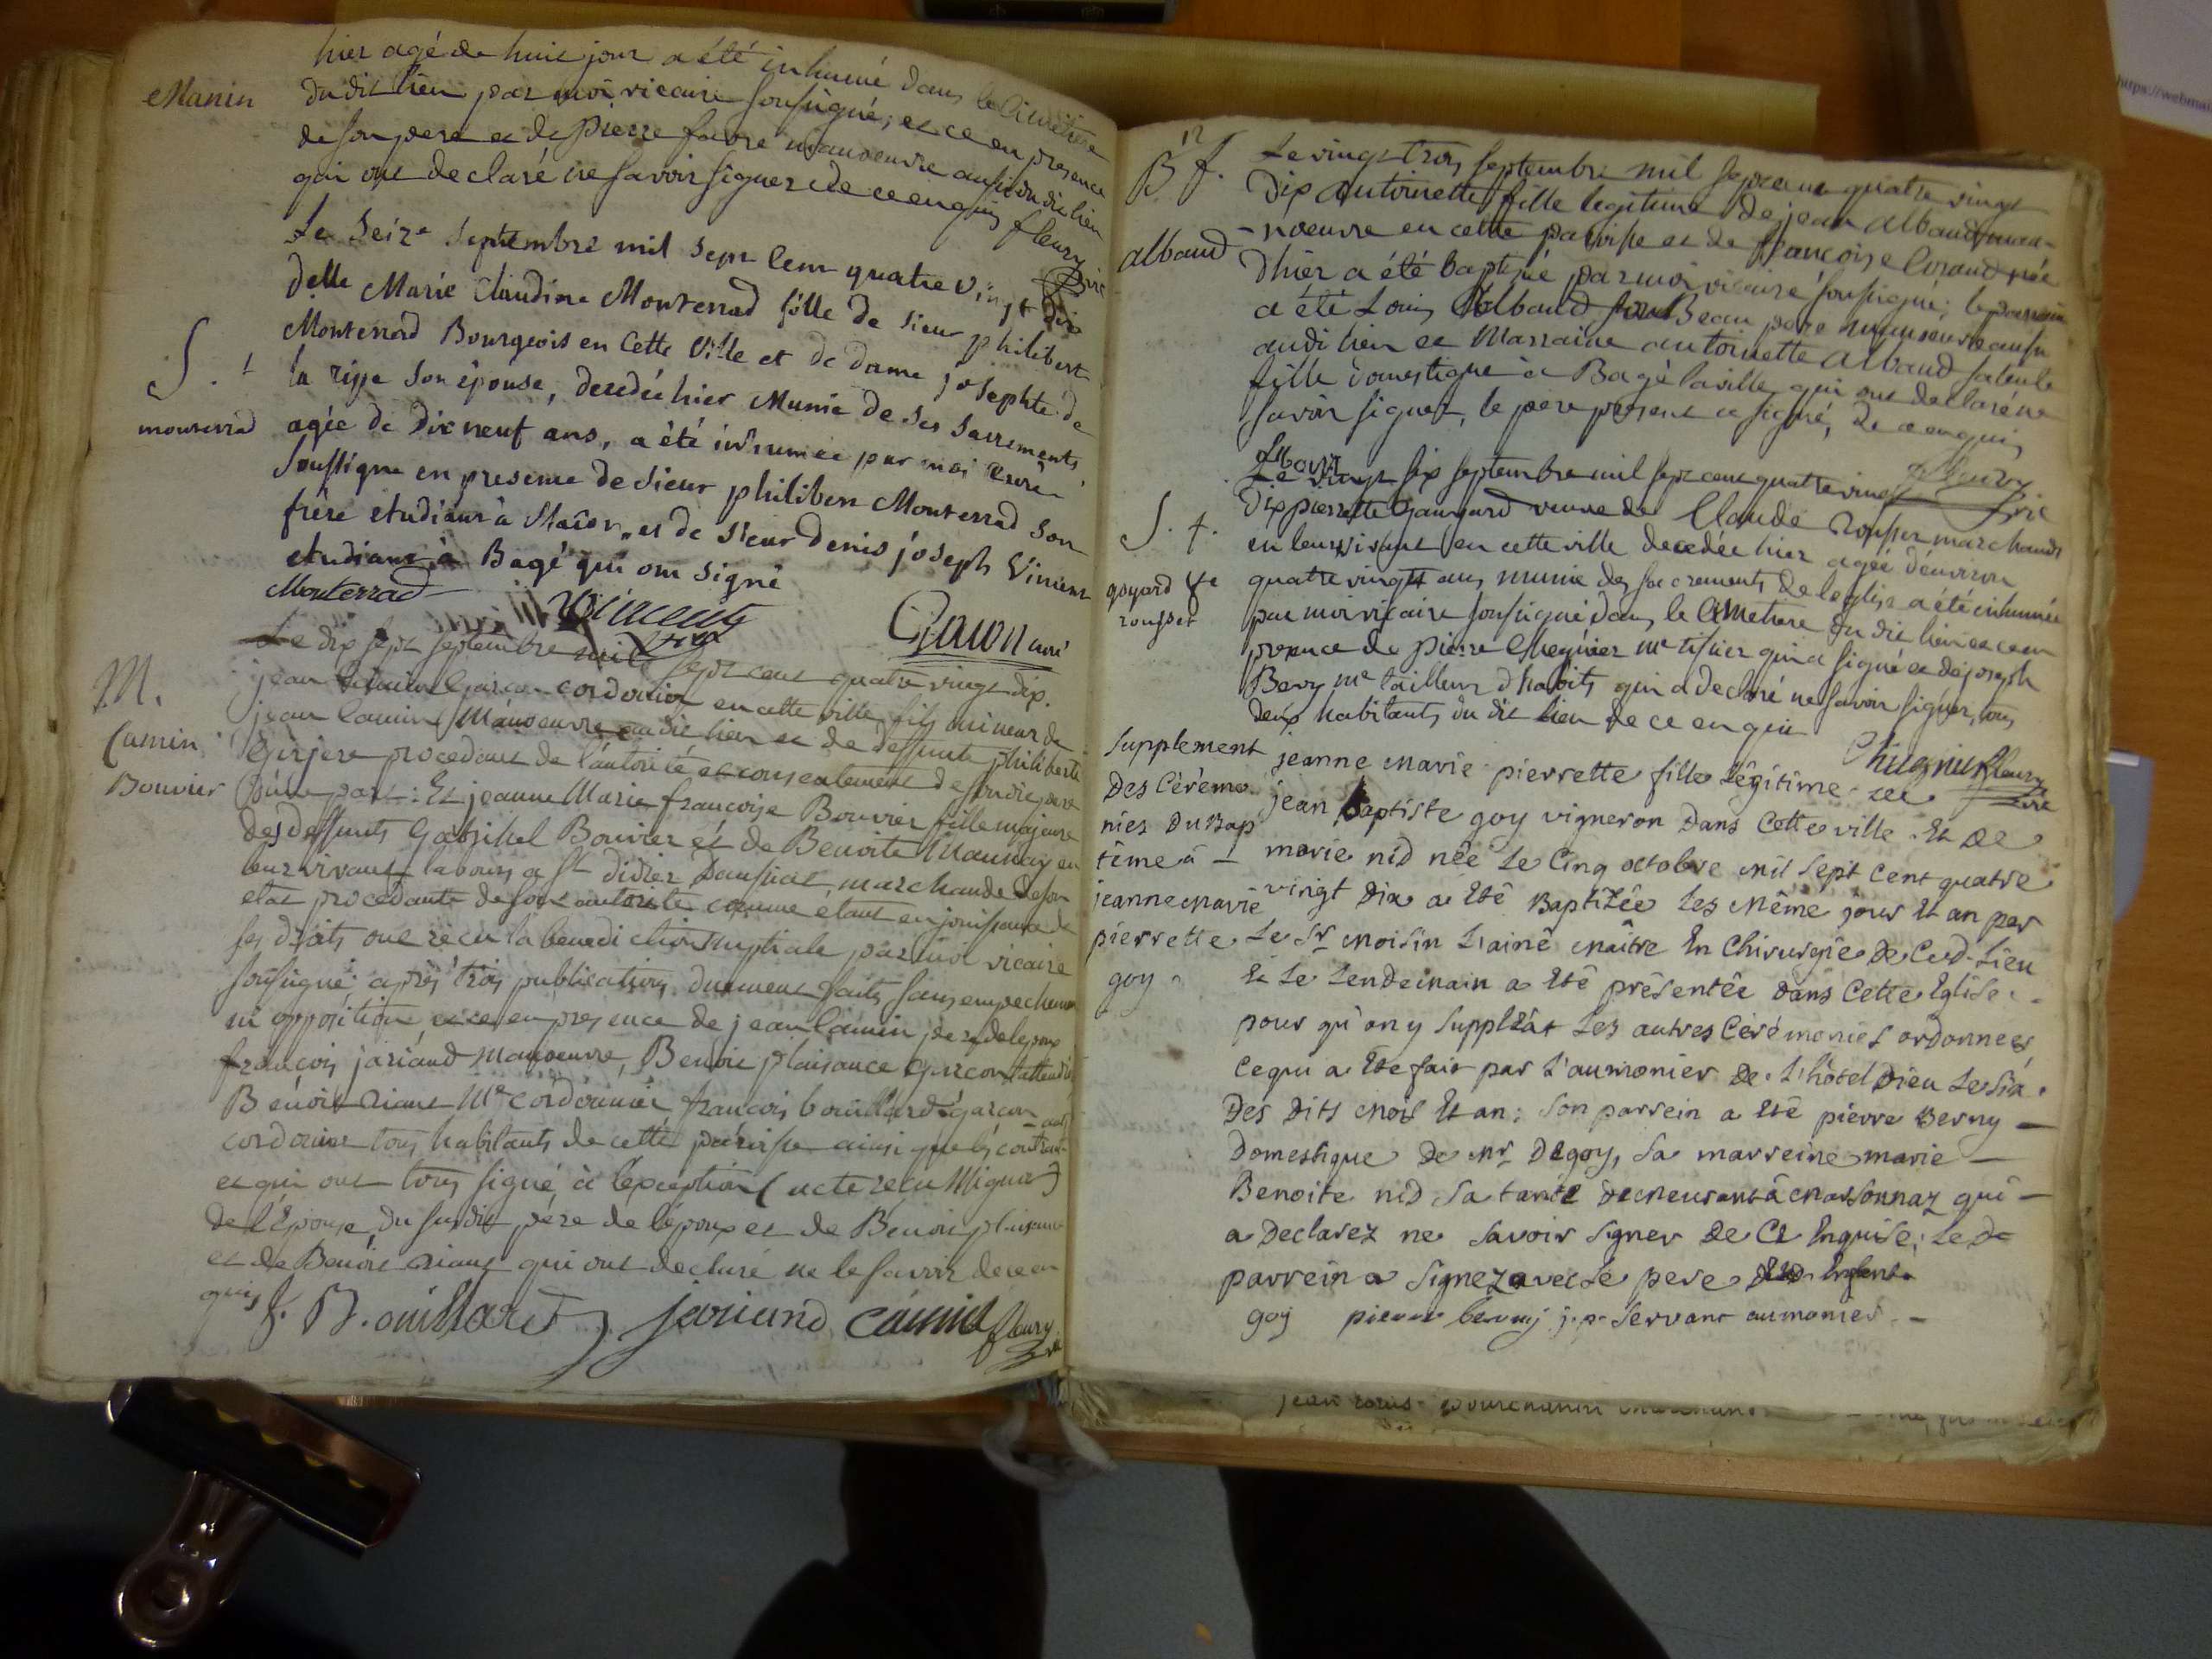 hier agé de huit jour a été inhumé dans le Cimetiere
Manin
du dit lieu par moi vicaire soussigné, et ce en presence
de son pere et de Pierre favre manoeuvre aussi du dit lieu
qui ont declaré ne savoir signer de ce enquis fleury
Vire
Le Seize Septembre mil Sept Cent quatre Vingt dix
delle Marie Claudine Monterrad fille de sieur philibert
Monterrad Bourgeois en Cette Ville et de dame josephte de
S. f
la Son épouse, decedée hier Munie de Ses Sacrements,
monterrad
agée de Dix neuf ans, a été inhumée par moi Curé
Soussigné en presence de Sieur philibert Monterrad Son
frère etudiant à Macon, et de Sieur Denis joseph Vincent
etudiant à Bagé qui ont Signé
Monterrad Vincent
curé
Le dix sept Septembre mil sept cent quatre vingt dix.
M.
jean garcon cordonier en cette ville fils mineur de
jean Camin Manoeuvre audit lieu et de deffunte philiberte
Camin
procedant de l'autorité et consentement de sondit pere
Bouvier
d'une part: Et jeanne Marie françoise Bouvier fille majeure
des deffunts Gabrihel Bouvier et de Benoite en
leur vivant labours a St didier Daussiat, marchande de son
etat procedante de son autorité comme étant en jouissance de
ses droits ont reçu la benediction nuptiale par moi vicaire
soussigné après trois publications duement faites sans empechement
ni opposition, et ce en presence de jean Camin pere de l'epoux
françois jariaud manoeuvre, Benoit plaisance garcon
Benoit Me cordonnier françois bouillard garcon
cordonier tous habitants de cette paroisse ainsi que les
et qui ont tous signé à l'exception (acte reçu Mignot)
de l'Epouse, du susdit père de l'époux et de Benoit plaisance
et de Benoit qui ont declaré ne le savoir de ce en
quis f. Bouillard jariaud Camin fleury
Vire
12
B f.
Le vingt trois septembre mil sept cent quatre vingt
Dix Antoinette fille legitime de jean albaud man-
albaud
-noeuvre en cette paroisse et de françoise née
d'hier a été baptisée par moi vicaire soussigné; le parrain
a été Louis Albaud son Beau pere manoeuvre aussi
audit lieu et Marraine antoinette Albaud sa tante
fille domestique à Bagé la ville qui ont declaré ne
savoir signer, le pere present a signé, de ce enquis
albaud fleury
Vire
S. f.
Le Vingt six septembre mil sept cent quatre vingt
Dix pierrette veuve de Claude Rousset marchands
en leur vivant en cette ville decedée hier agée d'environ
goyard Ve
quatre vingt ans munie des sacrements de l'eglise a été inhumée
rousset
par moi vicaire soussigné dans le Cimetiere du dit lieu et ce en
presence de Pierre Chugnier me tissier qui a signé et de joseph
Bevy me tailleur d'habits qui a declaré ne savoir signer, tous
deux habitants du dit lieu de ce enquis
Chugnier fleury
Vire
Supplement
jeanne Marie pierrette fille légitime de
Des Céremo
jean Baptiste goy vigneron Dans Cette ville Et De
nies Du Bap
marie nid née Le Cinq octobre mil Sept Cent quatre
tême à
vingt Dix a Eté Baptizée Les Même jour Et an par
jeanne Marie
Le Sr Moisin L'ainé Maitre En Chirurgie De Ced. Lieu
pierrette
Et Le Lendemain a Eté présentée Dans Cette Eglise
goy
pour qu'on y Suppléât Les autres Cérémonies ordonnees
Ce qui a Eté fait par L'aumonier De L'hôtel Dieu Le Six
Des Dits Mois Et an: Son parrein a Eté pierre Berny
Domestique De Mr Degoy, Sa marreine marie
Benoite nid Sa tante Demeurant à Massonnaz qui
a Declarez ne Savoir Signer De Ce Enquise, Le D
parrein a Signez avec Le pere Dud. Enfent
goy pierre berny j.p. Servant aumonier